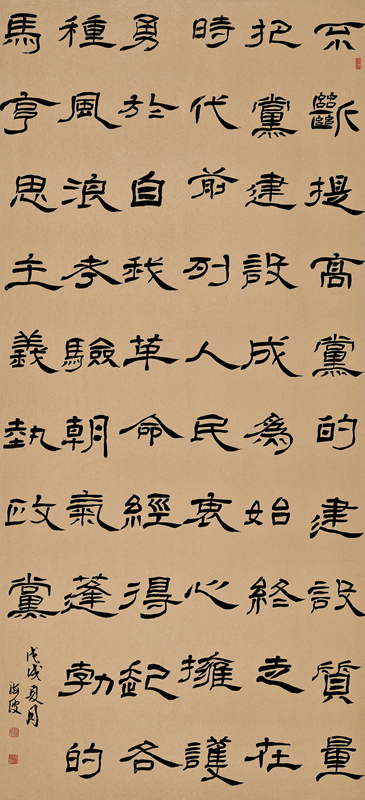 不斷提高黨的建設質量
把黨建設成為始終走在
時代前列人民衷心擁護
勇於自我革命經得起各
種風浪考驗朝氣蓬勃的
馬克思主義執政黨
戊戌夏月
海波